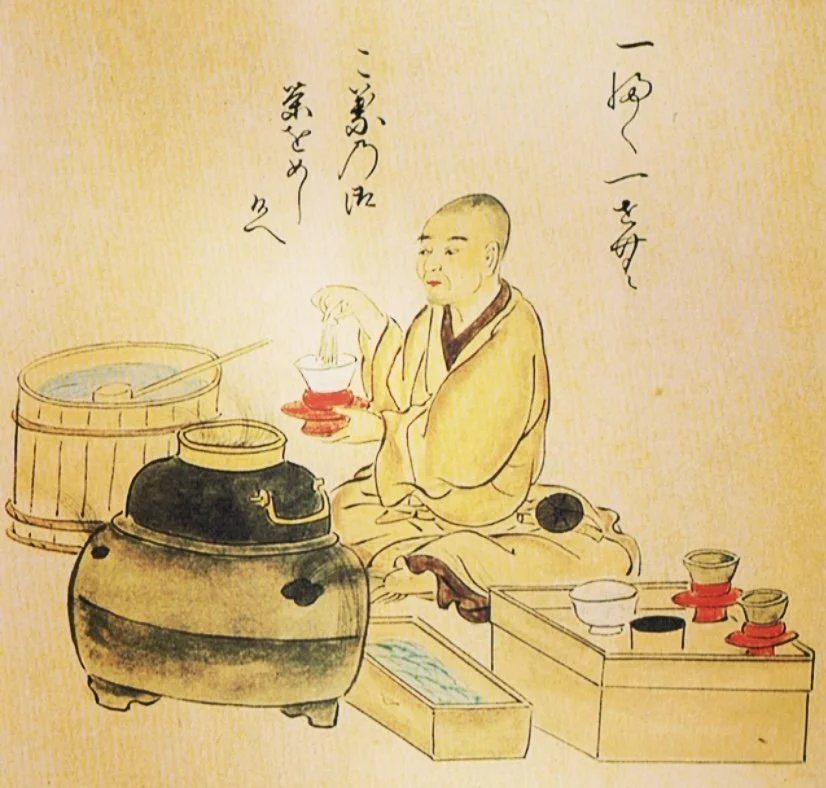 一ふく一せん
こ葉乃御
茶をめし
候へ